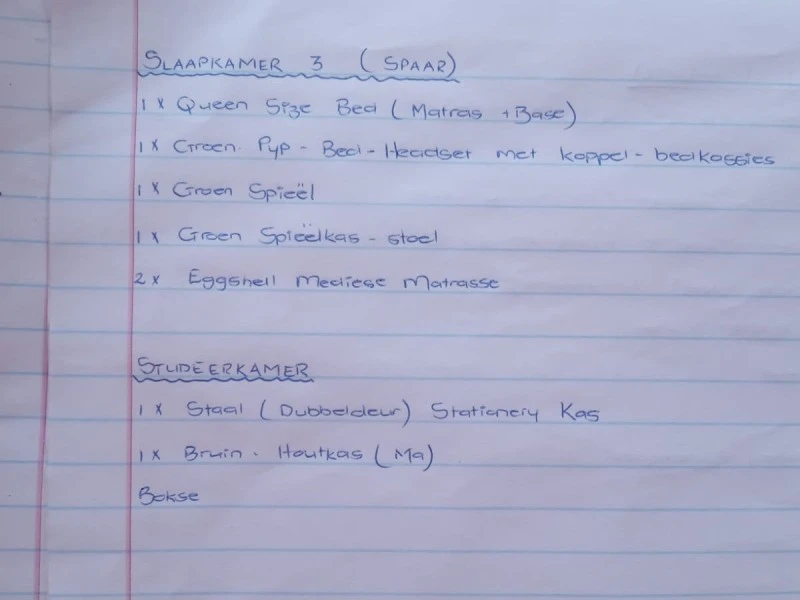 SLAAPKAMER 3 (SPAAR)
1 x Queen Size Bed (Matras + Base)
1 x Groen Pyp - Bed - Headset met koppel - bedkassies
1 x Groen Spieël
1 x Groen Spieëlkas - stoel
2 x Eggshell Mediese Matrasse
STUDEERKAMER
1 x Staal (Dubbeldeur) Stationery Kas
1 x Bruin - Houtkas (Ma)
Bokse